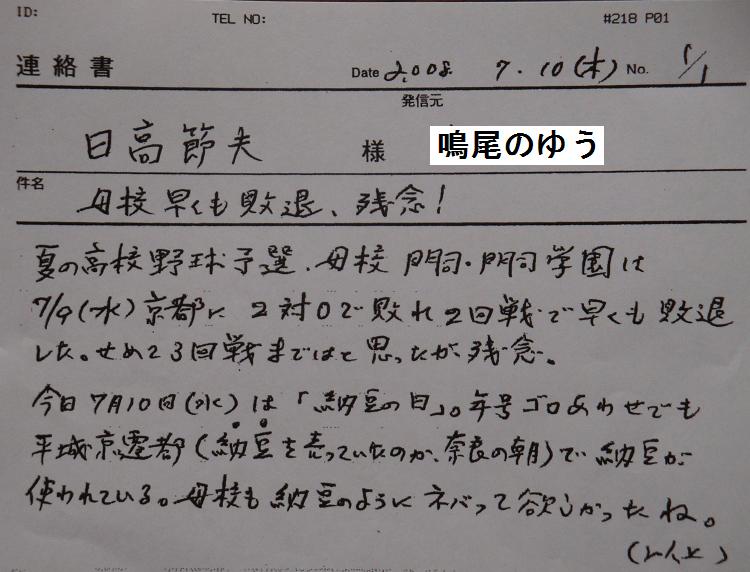 ID:
TEL NO:
#218 P01
連絡書
Date 2008. 7.10(木) No. 1/1
発信元
日高節夫 様 鳴尾のゆう
件名
母校早くも敗退、残念!
夏の高校野球予選、母校 門司・門司学園は
7/9(水)京都に2対0で敗れ2回戦で早くも敗退
した。せめて3回戦まではと思ったが残念。
今日7月10日(水)は「納豆の日」。年号ゴロあわせでも
平城京遷都(納豆を売っていたのか、奈良の朝)で納豆が
使われている。母校も納豆のようにネバって欲しかったね。
(以上)